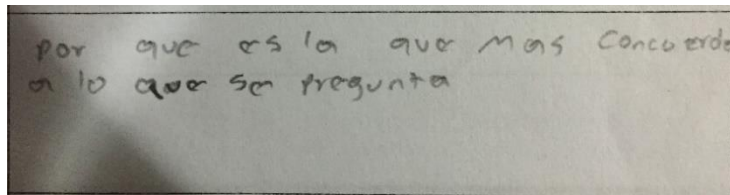 por que es la que mas concuerda
a lo que se pregunta